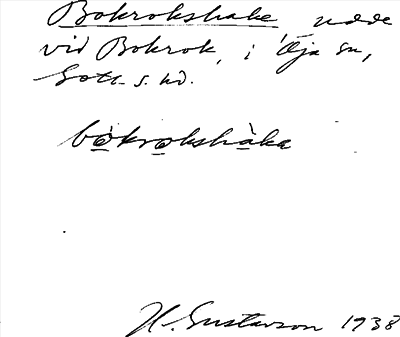 Bokrokshake udde
vid Bokrok, i Öja sn,
Gotl. s. hd.
bòkrokshàka
H. Gustavson 1938